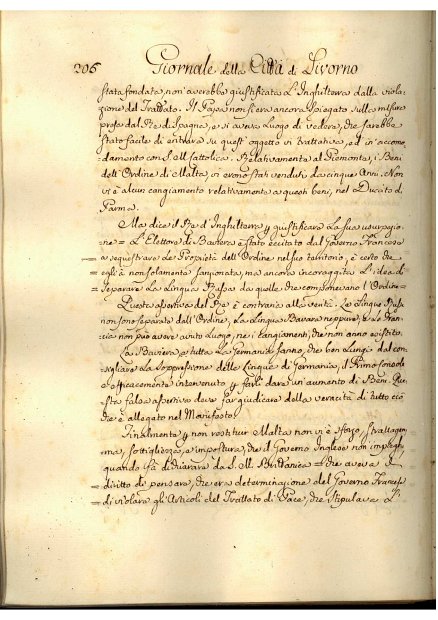 206 Giornale della Città di Livorno
stata fondata, non averebbe giustificata L'Inghilterra dalla viola-
zione del Trattato. Il Papa non si era ancora spiegato sulla misura
presa dal Re di Spagna, e si aveva luogo di vedere, che sarebbe
stato facile di entrare su quest'oggetto in trattativa, ed in accomo-
damento con S. M. Cattolica. Relativamente al Piemonte, i Beni
dell'Ordine di Malta, vi erono stati venduti da cinque Anni. Non
vi è alcun cangiamento relativamente a questi beni, nel Ducato di
Parma.
Ma dice il Re d'Inghilterra p giustificare la sua usurpazio-
ne = L'Elettore di Baviera è stato eccitato dal Governo Francese
= a sequestrare le Proprietà dell'Ordine nel suo territorio; è certo che
= egli à non solamente sanzionata, ma ancora incoraggita L'idea di
= separare La Lingua Russa da quelle che componevano l'Ordine =
Questa assertiva del Re è contraria alla verità. Le Lingue Russe
non sono separate dall'Ordine, La Lingua Bavara neppure, e La Fran-
cia non può avere avuto Luogo, nei Cangiamenti, che non anno esistito.
La Baviera, e tutta La Germania sanno, che ben lungi dal con-
sigliare La Soppressione delle Lingue di Germania, il Primo Console
è efficacemente intervenuto p farli dare un aumento di Beni. Que-
sta falsa assertiva deve far giudicare della veracità di tutto ciò
che è allegato nel Manifesto.
Finalmente p non restituir Malta non vi è sforzo, strattagem-
ma, sottigliezza, e impostura, che il Governo Inglese non impieghi,
quando fà dichiarare da S. M. Britanica = che aveva il
= diritto di pensare, che era determinazione del Governo Francese
= di violare gli Articoli del Trattato di Pace, che stipulava L'